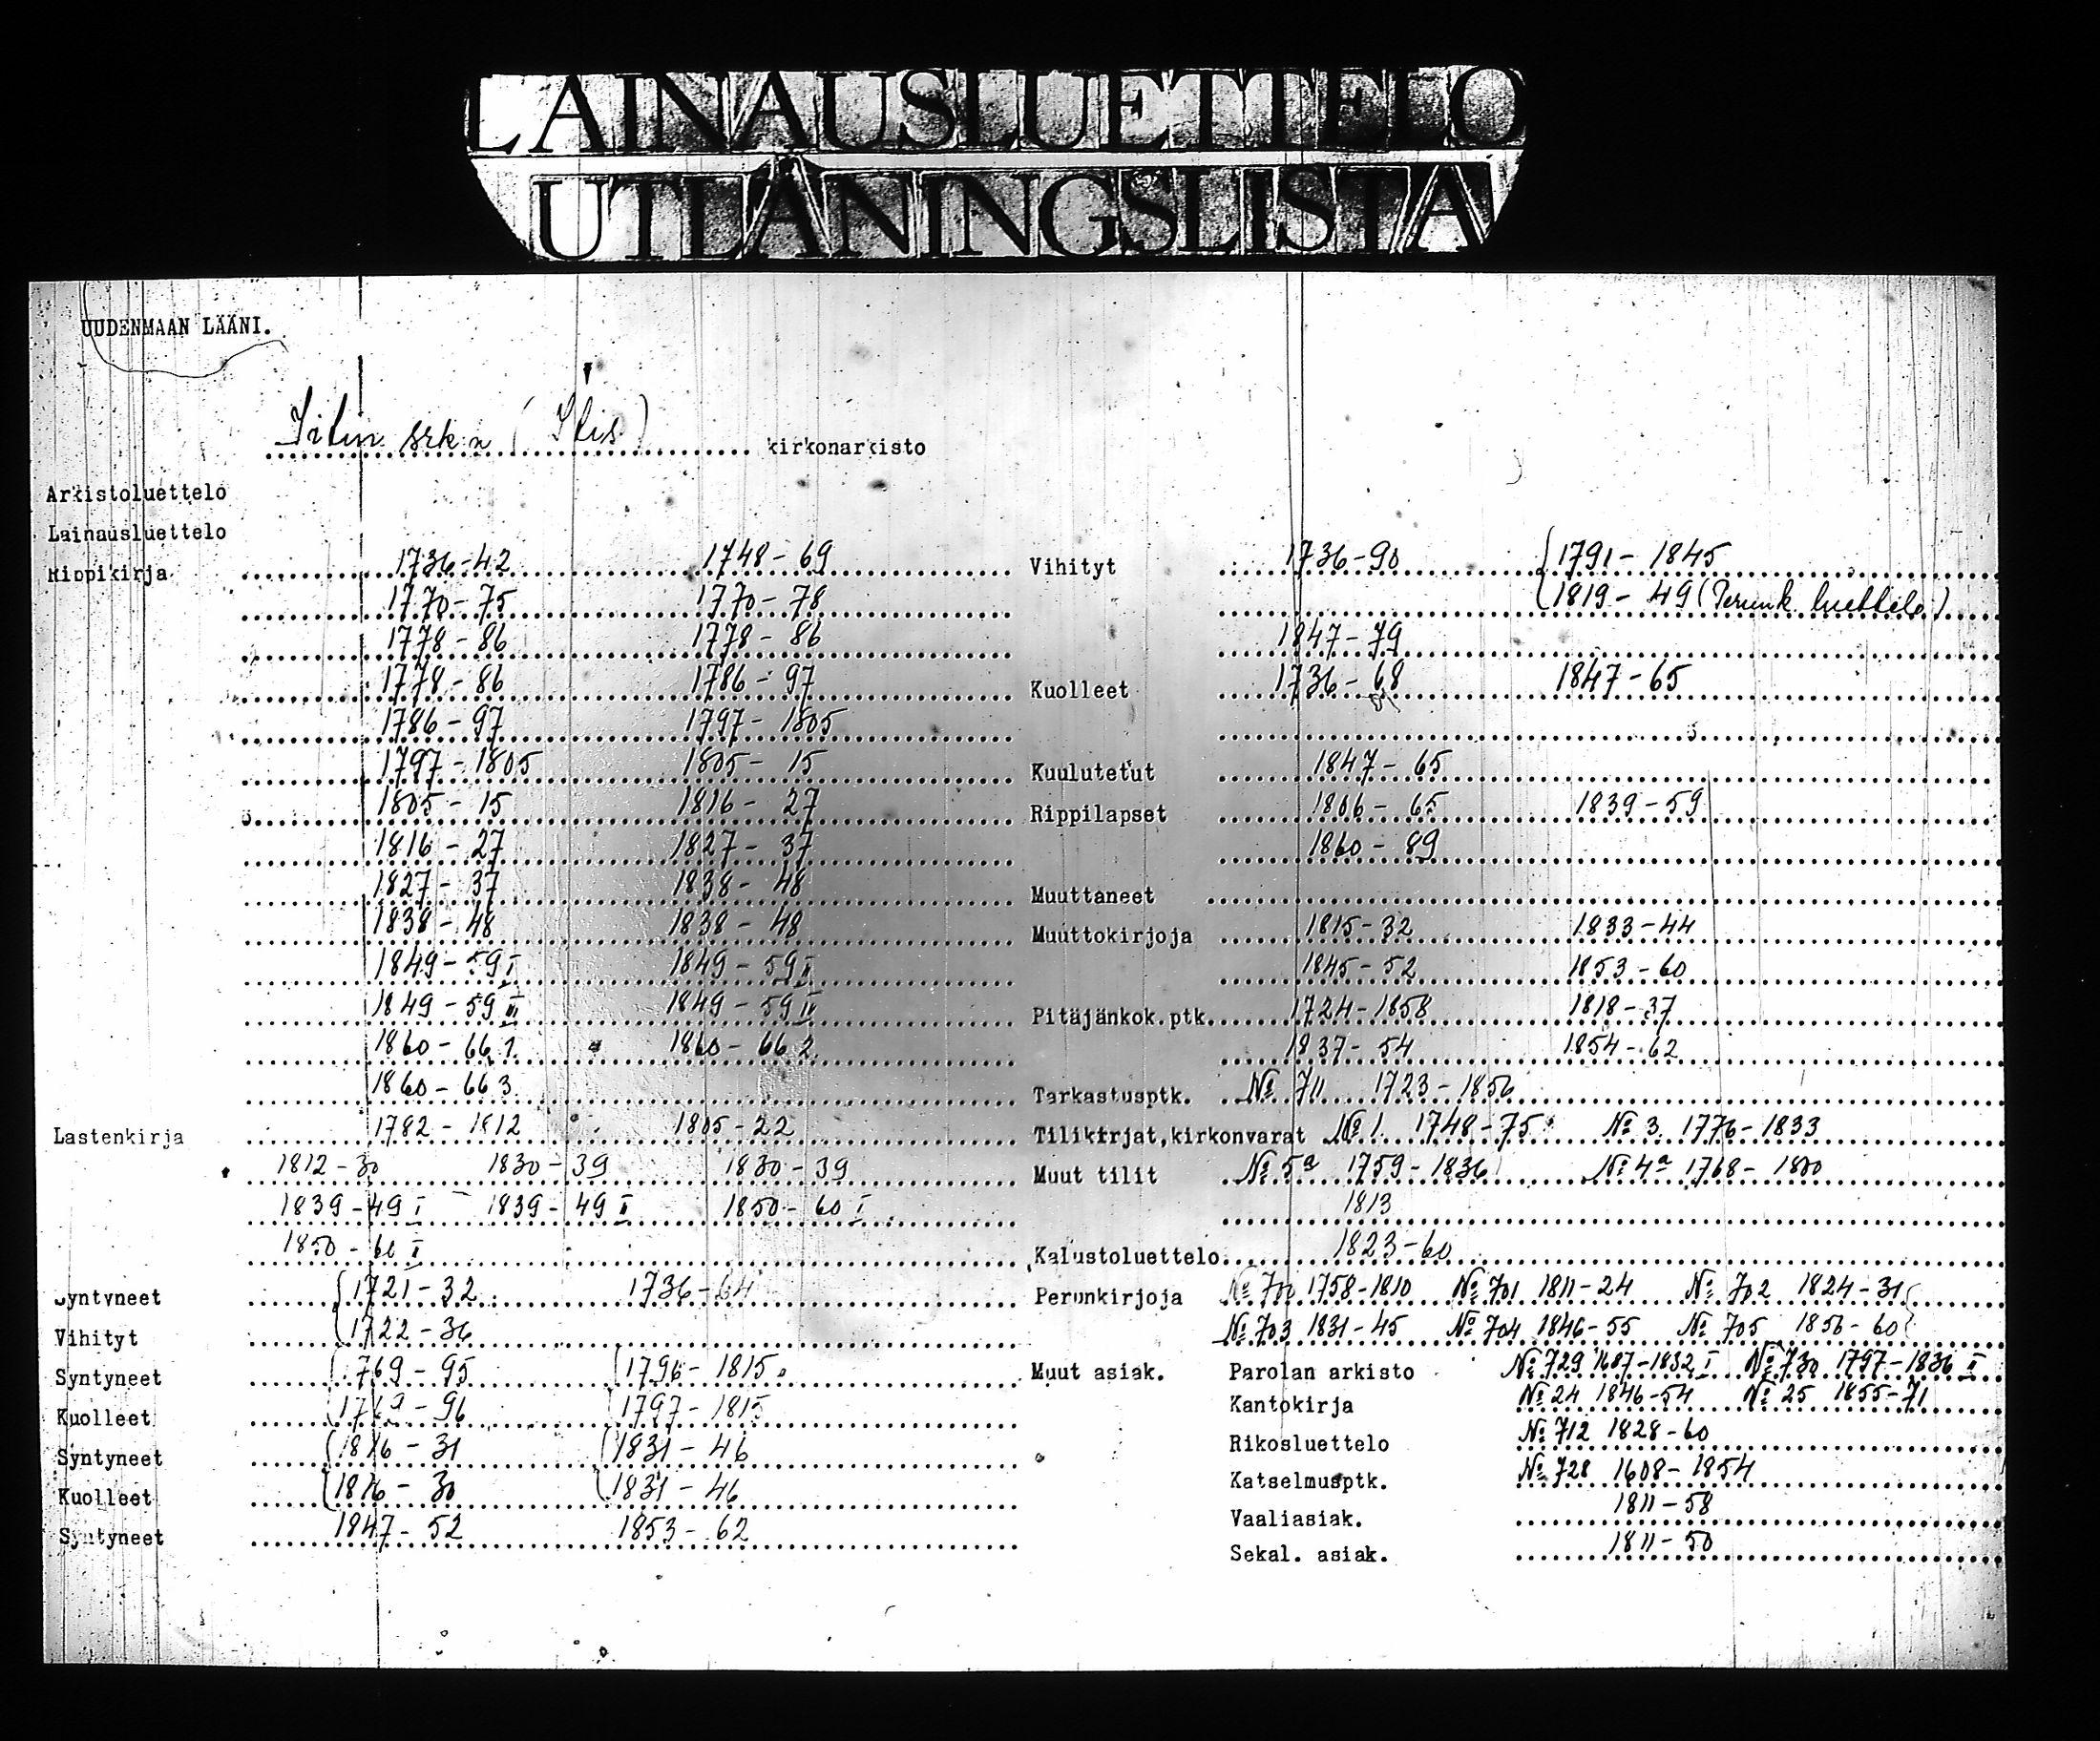 LAINAUSLUETTELO
UTLÅNINGSLISTA
UUDENMAAN LÄÄNI.
Iitin srk:n (Itis) kirkonarkisto
Arkistoluettelo
Lainausluettelo
Rippikirja 1736-42 1748-69
1770-75 1770-78
1778-86 1778-86
1778-86 1786-97
1786-97 1797-1805
1797-1805 1805-15
1805-15 1816-27
1816-27 1827-37
1827-37 1838-48
1838-48 1838-48
1849-59 I 1849-59 II
1849-59 III 1849-59 IV
1860-66 1. 1860-66 2.
1860-66 3.
Lastenkirja 1782-1812 1805-22
1812-30 1830-39 1830-39
1839-49 I 1839-49 II 1850-60 I
1850-60 II
Syntyneet 1721-32 1736-64
Vihityt 1722-36
Syntyneet 1769-95 1796-1815
Kuolleet 1769-96 1797-1815
Syntyneet 1816-31 1831-46
Kuolleet 1816-30 1831-46
Syntyneet 1847-52 1853-62
Vihityt 1736-90 1791-1845
1819-49 (Perunk. luettelo)
1847-79
Kuolleet 1736-68 1847-65
Kuulutetut 1847-65
Rippilapset 1806-65 1839-59
1860-89
Muuttaneet
Muuttokirjoja 1815-32 1833-44
1845-52 1853-60
Pitäjänkok.ptk. 1724-1858 1818-37
1837-54 1854-62
Tarkastusptk. № 711 1723-1856
Tilikirjat,kirkonvarat № 1. 1748-75 № 3. 1776-1833
Muut tilit № 5a 1759-1836 № 4a 1768-1800
1813
Kalustoluettelo 1823-60
Perunkirjoja № 700 1758-1810 № 701 1811-24 № 702 1824-31
№ 703 1831-45 № 704 1846-55 № 705 1856-60
Muut asiak. Parolan arkisto № 729 1687-1832 I № 730 1797-1836 II
Kantokirja № 24 1846-54 № 25 1855-71
Rikosluettelo № 712 1828-60
Katselmusptk. № 728 1608-1854
Vaaliasiak. 1811-58
Sekal. asiak. 1811-50